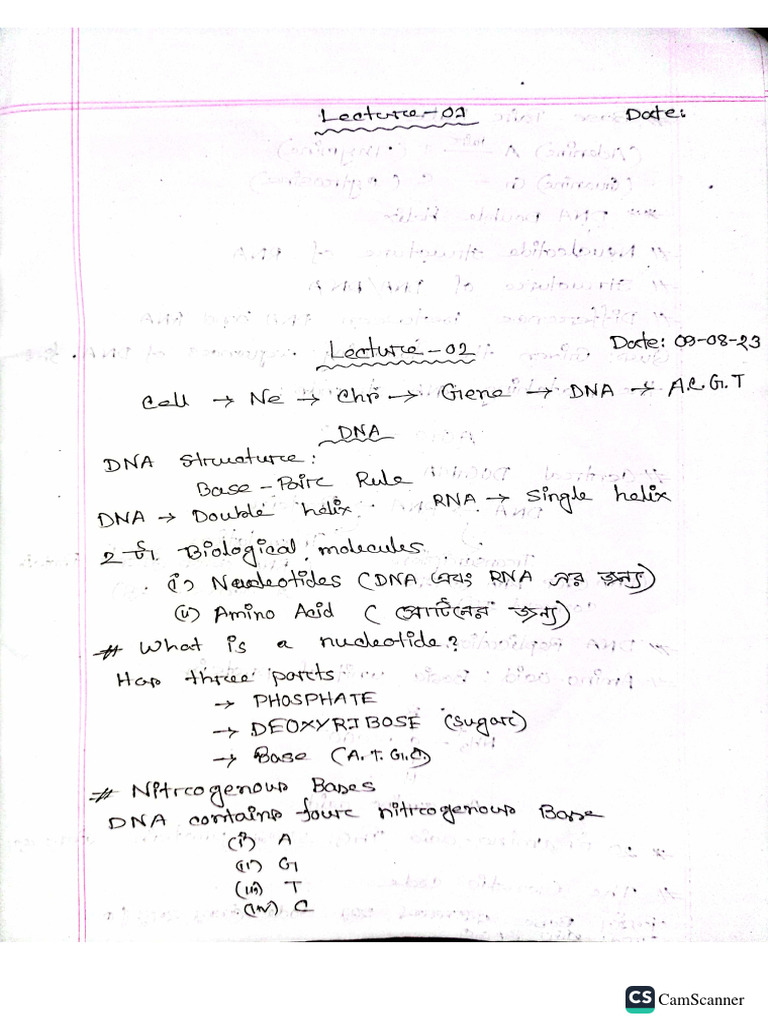 Lecture-01 Date:
Lecture-02 Date: 09-08-23
Cell → Ne → Chr → Gene → DNA → A.C.G.T
DNA
DNA Structure:
Base-Pair Rule
DNA → Double helix. RNA → Single helix
2 টা Biological molecules
(i) Neucleotides (DNA এবং RNA এর জন্য)
(ii) Amino Acid (প্রোটিনের জন্য)
# What is a nucleotide?
Has three parts
→ PHOSPHATE
→ DEOXYRIBOSE (sugar)
→ Base (A.T.G.C)
# Nitrogenous Bases
DNA contains four nitrogenous Base
(i) A
(ii) G
(iii) T
(iv) C
CS CamScanner